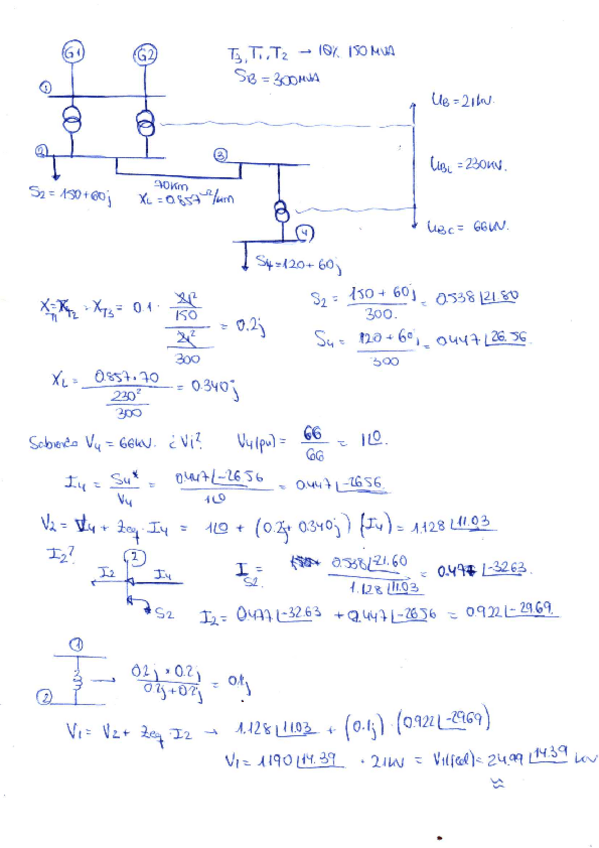 G1 G2 T3, T1, T2 → 10% 150 MVA
SB = 300 MVA
1
UB = 21 kV
2
3
UBL = 230 kV.
S2 = 150 + 60j
70 km
XL = 0.857 Ω/km
4
UBC = 66 kV.
S4 = 120 + 60j
XT1 = XT2 = XT3 = 0.1 · (21²/150)/(21²/300) = 0.2j
S2 = (150 + 60j)/300 = 0.538∠21.80
S4 = (120 + 60j)/300 = 0.447∠26.56.
XL = (0.857 · 70)/(230²/300) = 0.340j
Sabiendo V4 = 66 kV. ¿V1? V4(pu) = 66/66 = 1∠0.
I4 = S4*/V4 = 0.447∠-26.56/1∠0 = 0.447∠-26.56
V2 = V4 + Zeq · I4 = 1∠0 + (0.2j + 0.340j)(I4) = 1.128∠11.03
I2?
2
I2 I4
S2
I S2 = 0.538∠-21.60/1.128∠11.03 = 0.477∠-32.63
I2 = 0.477∠-32.63 + 0.447∠-26.56 = 0.922∠-29.69.
1
2
→ (0.2j * 0.2j)/(0.2j + 0.2j) = 0.1j
V1 = V2 + Zeq · I2 → 1.128∠11.03 + (0.1j) · (0.922∠-29.69)
V1 = 1.190∠14.39 · 21 kV = V1(real) = 24.99∠14.39 kV